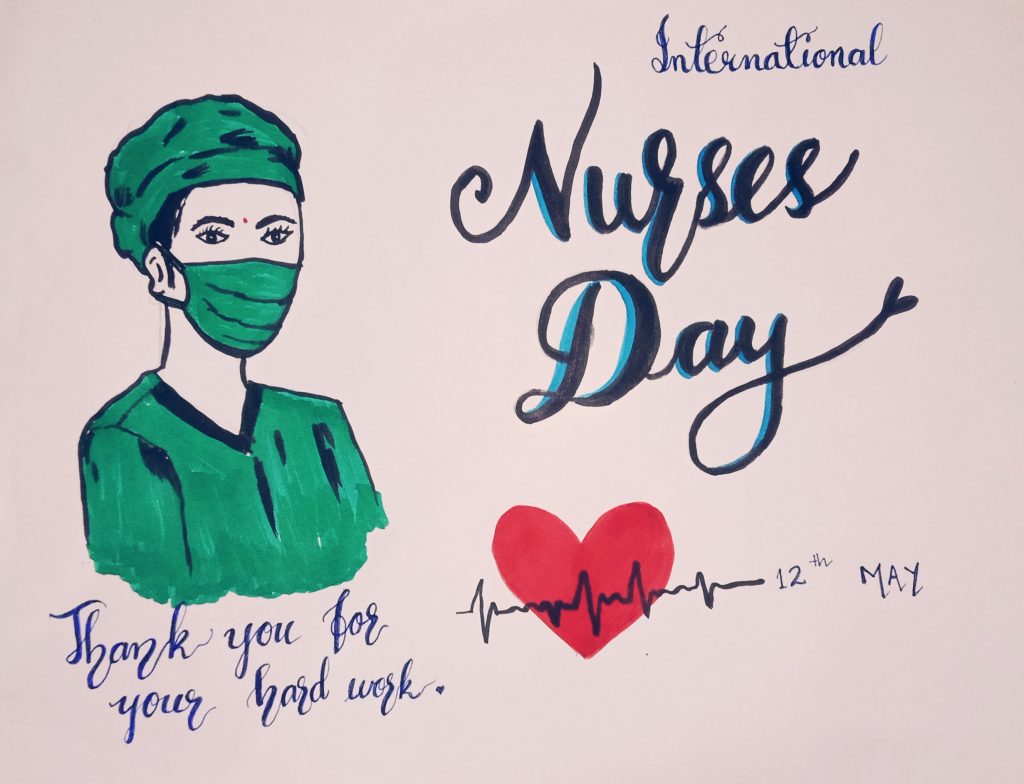 International
Nurses
Day
12th MAY
Thank you for
your hard work.